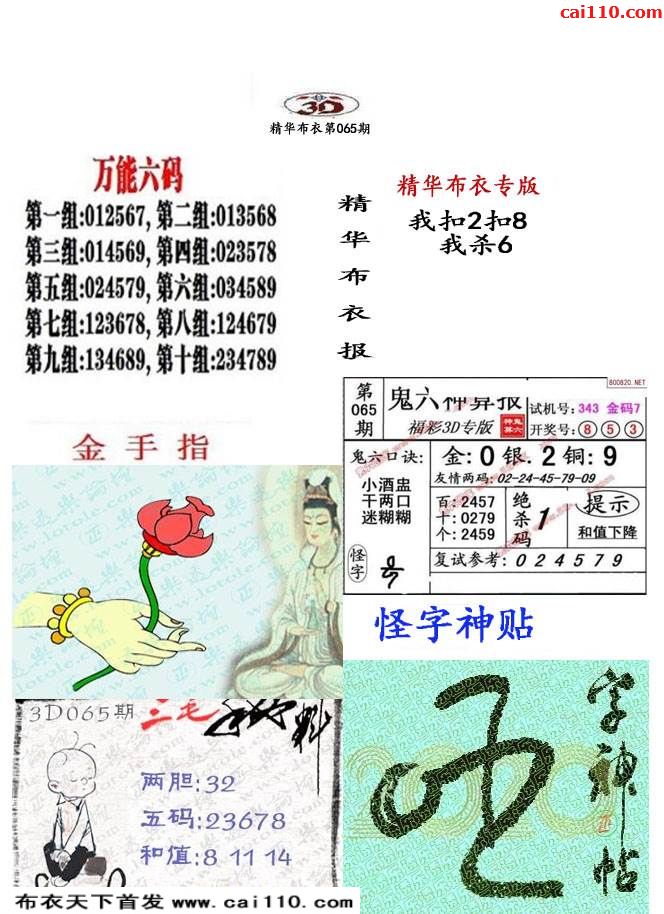 cai110.com
3D
精华布衣第065期
万能六码
第一组:012567,第二组:013568
第三组:014569,第四组:023578
第五组:024579,第六组:034589
第七组:123678,第八组:124679
第九组:134689,第十组:234789
精华布衣报
精华布衣专版
我扣2扣8
我杀6
800820.NET
第065期
鬼六神算报
福彩3D专版
试机号:343 金码7
开奖号:853
鬼六口诀:
小酒盅
干两口
迷糊糊
金:0 银.2 铜:9
友情两码:02-24-45-79-09
百:2457
十:0279
个:2459
绝杀码
1
提示
和值下降
怪字
复试参考:024579
金手指
怪字神贴
字神帖
3D065期
三毛
资料
两胆:32
五码:23678
和值:8 11 14
布衣天下首发 www.cai110.com